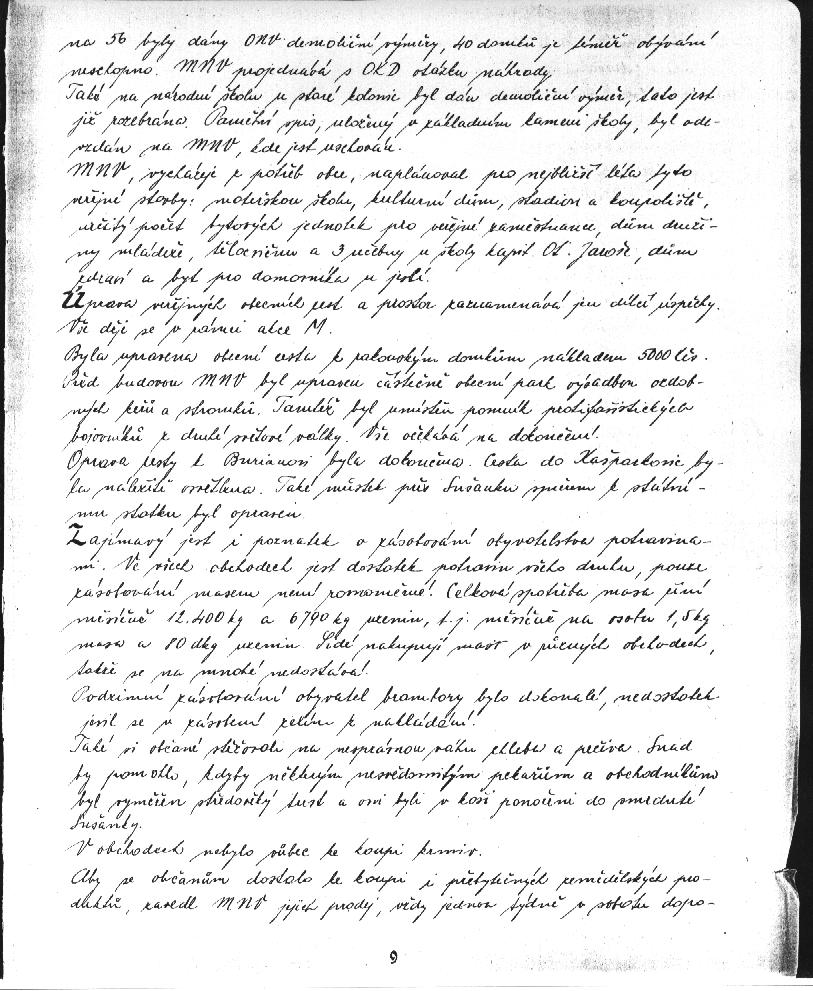 na 56 byly dány ONV demoliční výměry, 40 domků je téměř obývání
neschopno. MNV projednává s OKD otázku náhrady.
Také na národní školu u staré kolonie byl dán demoliční výměr, tato jest
již rozebrána. Pamětní spis, uložený v základním kameni školy, byl ode-
vzdán na MNV, kde jest uschován.
MNV, vycházeje z potřeb obce, naplánoval pro nejbližší léta tyto
veřejné stavby: mateřskou školu, kulturní dům, stadion a koupaliště,
určitý počet bytových jednotek pro veřejné zaměstnance, dům druži-
ny mládeže, tělocvičnu a 3 učebny u školy kapit. Ot. Jaroše, dům
zdraví a byt pro domovníka u jeslí.
Úprava veřejných obecních cest a prostor zaznamenává jen dílčí úspěchy.
Vše děje se v rámci akce M.
Byla upravena obecní cesta k rakovským domkům nákladem 5000 Kčs.
Před budovou MNV byl upraven částečně obecní park výsadbou ozdob-
ných keřů a stromků. Tamtéž byl umístěn pomník protifašistických
bojovníků z druhé světové války. Vše očekává na dokončení.
Oprava cesty k Burianovi byla dokončena. Cesta do Kašparkovic by-
la náležitě osvětlena. Také můstek přes Sušanku směrem k státní-
mu statku byl opraven.
Zajímavý jest i poznatek o zásobování obyvatelstva potravina-
mi. Ve všech obchodech jest dostatek potravin všeho druhu, pouze
zásobování masem není rovnoměrné. Celková spotřeba masa činí
měsíčně 12.400 kg a 6790 kg uzenin, t. j. měsíčně na osobu 1,5 kg
masa a 80 dkg uzenin. Lidé nakupují maso v různých obchodech,
takže se na mnohé nedostává.
Podzimní zásobování obyvatel brambory bylo dokonalé, nedostatek
jevil se v zásobení zelím k nakládání.
Také si občané stěžovali na nesprávnou váhu chleba a pečiva. Snad
by pomohlo, kdyby některým nesvědomitým pekařům a obchodníkům
byl vyměřen středověký trest a oni byli v koši ponořeni do smrduté
Sušanky.
V obchodech nebylo vůbec ke koupi krmiv.
Aby se občanům dostalo ke koupi i přebytečných zemědělských pro-
duktů, zavedl MNV jejich prodej, vždy jednou týdně v sobotu dopo-
9